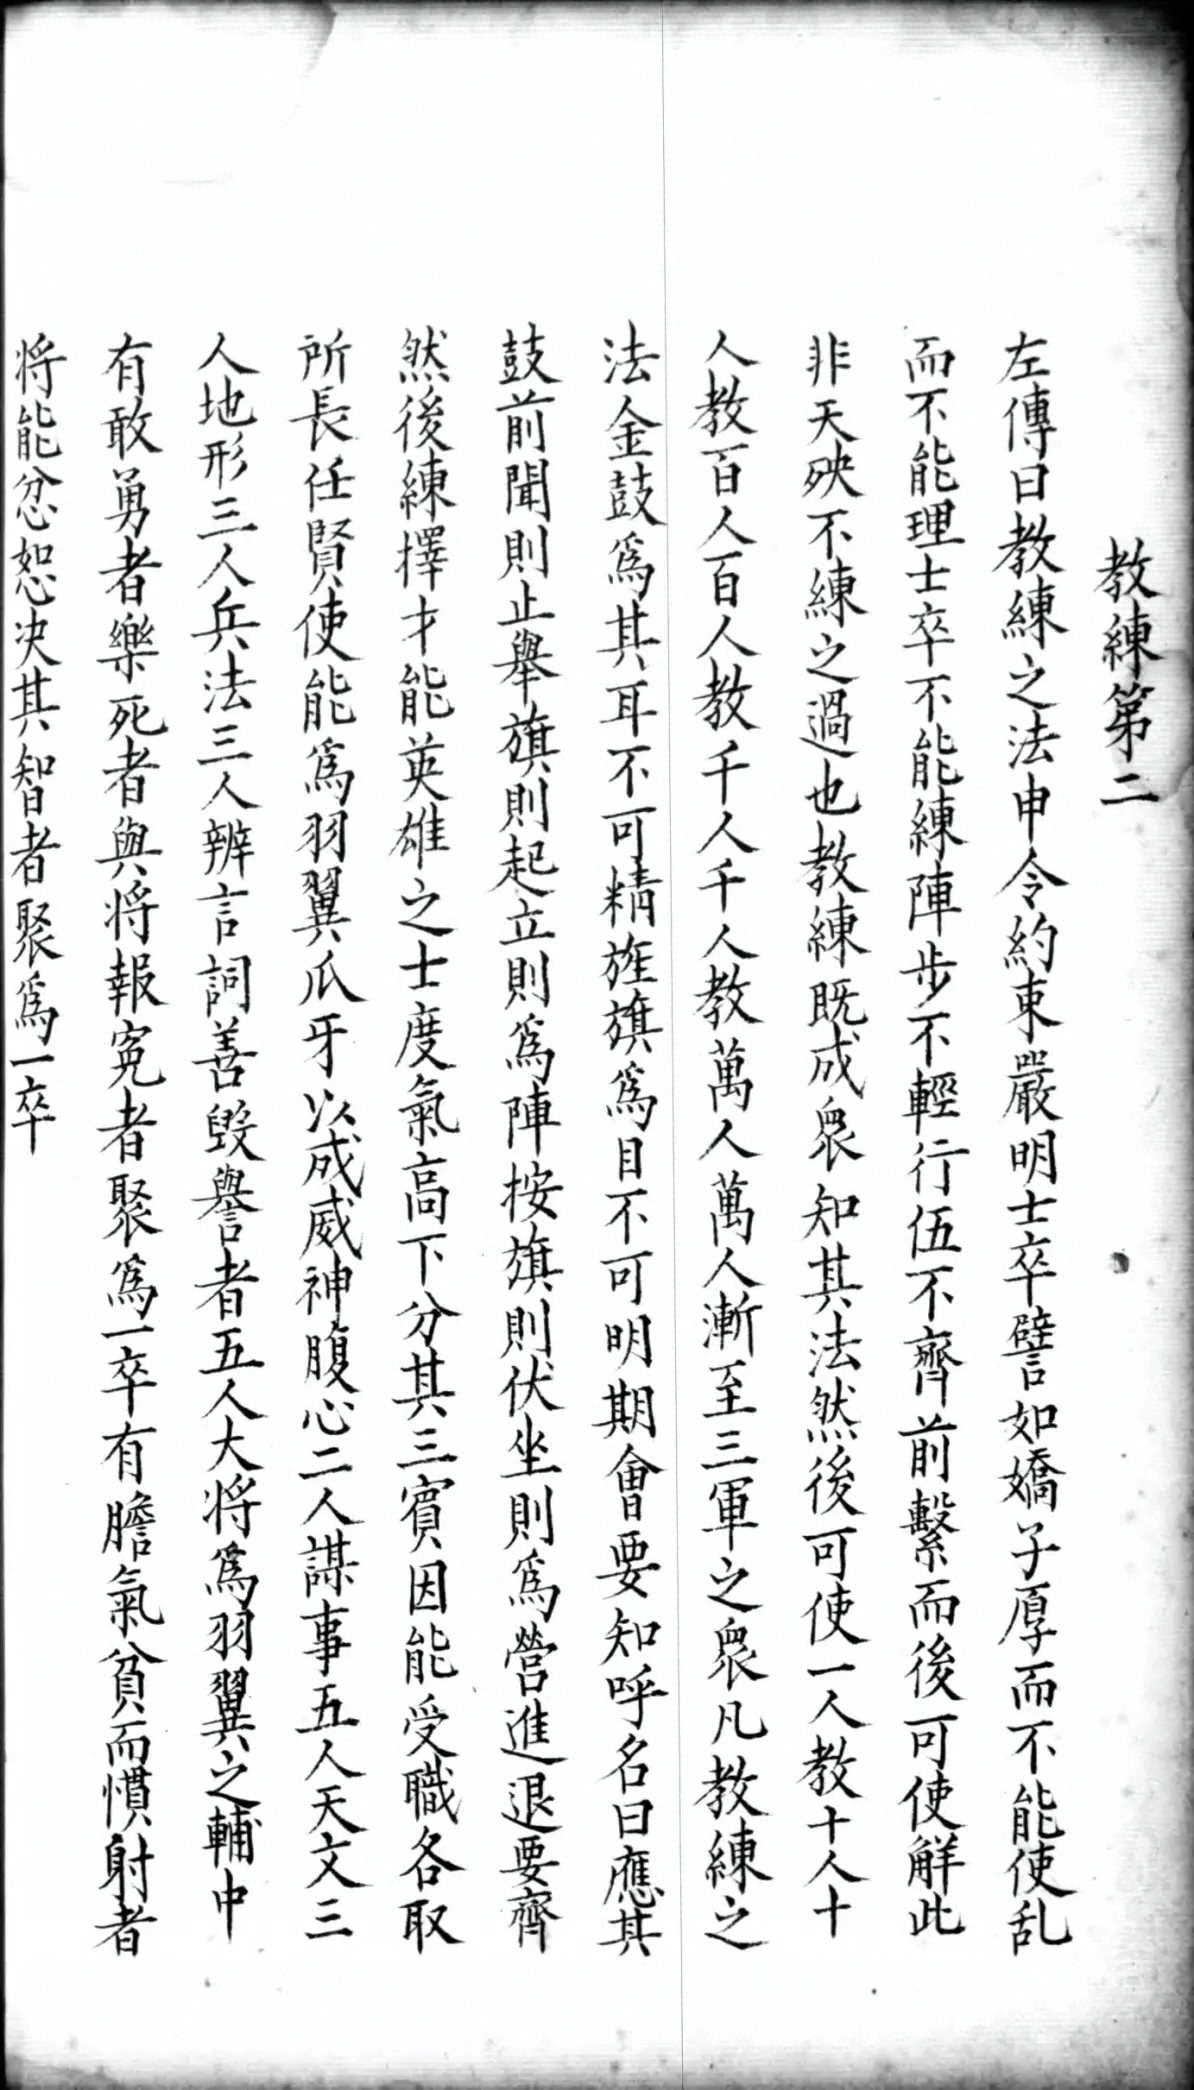 教練第二
左傳曰教練之法申令約束嚴明士卒譬如嬌子厚而不能使乱
而不能理士卒不能練陣步不輕行伍不齊前繫而後可使解此
非天殃不練之過也教練既成衆知其法然後可使一人教十人十
人教百人百人教千人千人教萬人萬人漸至三軍之衆凡教練之
法金鼓爲其耳不可精旌旗爲目不可明期會要知呼名曰應其
鼓前聞則止舉旗則起立則爲陣按旗則伏坐則爲營進退要齊
然後練擇才能英雄之士度氣高下分其三賓因能受職各取
所長任賢使能爲羽翼爪牙以成威神腹心二人謀事五人天文三
人地形三人兵法三人辨言詞善毀譽者五人大将爲羽翼之輔中
有敢勇者樂死者與将報寃者聚爲一卒有膽氣貧而慣射者
将能忿恕决其智者聚爲一卒